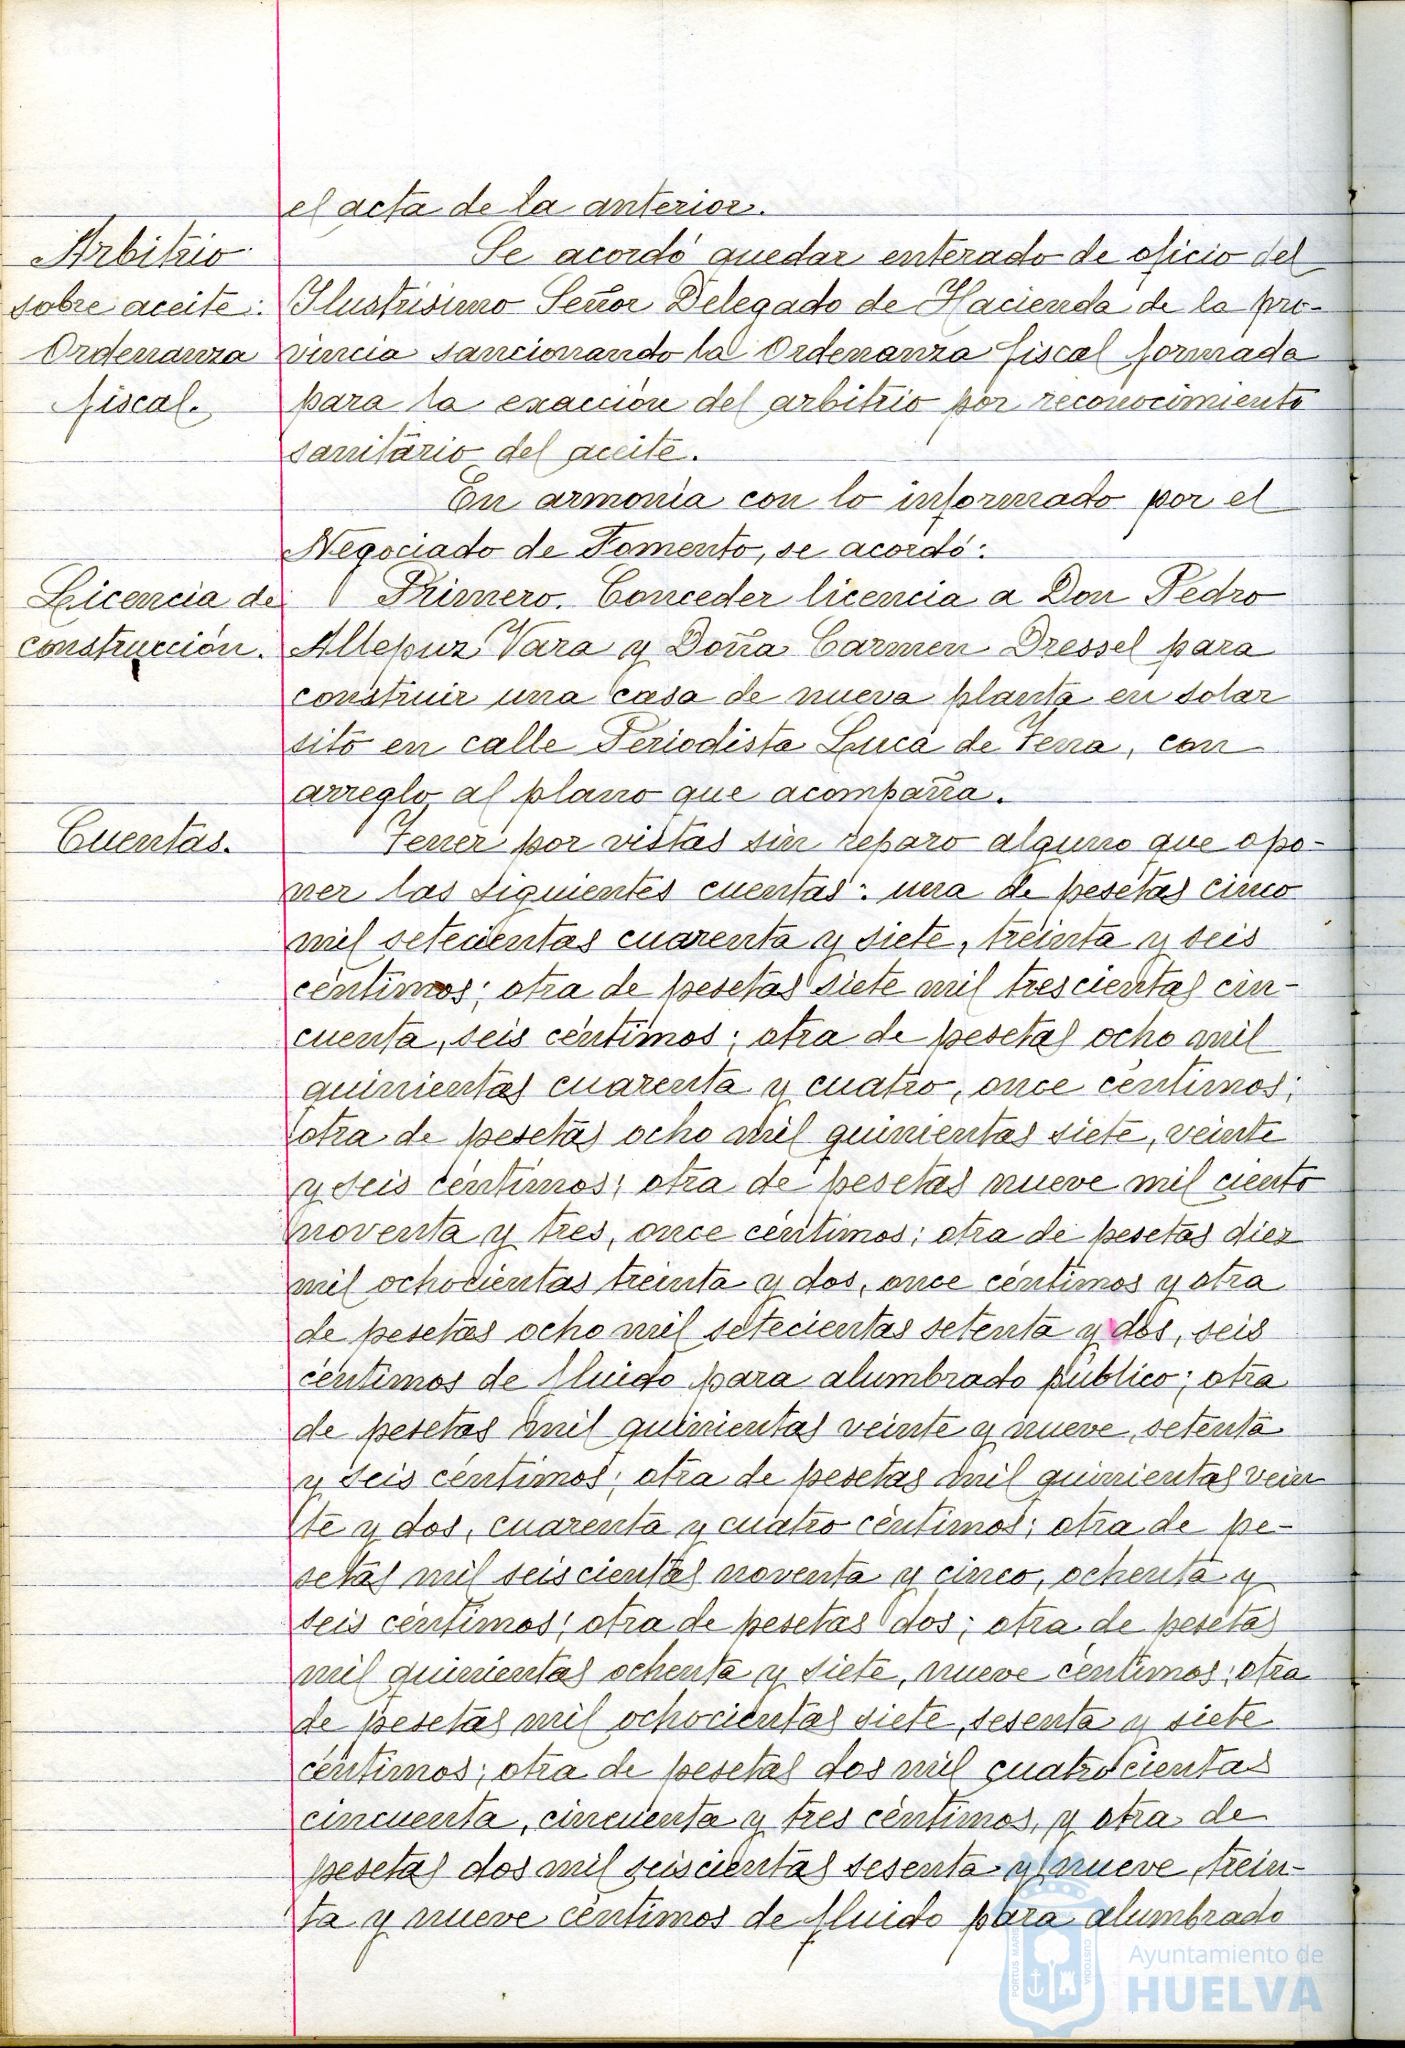 el acta de la anterior.
Arbitrio
sobre aceite:
Ordenanza
fiscal.
Se acordó quedar enterado de oficio del
Ilustrísimo Señor Delegado de Hacienda de la pro-
vincia sancionando la Ordenanza fiscal formada
para la exacción del arbitrio por reconocimiento
sanitario del aceite.
En armonía con lo informado por el
Negociado de Fomento, se acordó:
Licencia de
construcción.
Primero. Conceder licencia a Don Pedro
Allepuz Vara y Doña Carmen Dressel para
construir una casa de nueva planta en solar
sito en calle Periodista Luca de Tena, con
arreglo al plano que acompaña.
Cuentas.
Tener por vistas sin reparo alguno que opo-
ner las siguientes cuentas: una de pesetas cinco
mil setecientas cuarenta y siete, treinta y seis
céntimos; otra de pesetas siete mil trescientas cin-
cuenta, seis céntimos; otra de pesetas ocho mil
quinientas cuarenta y cuatro, once céntimos;
otra de pesetas ocho mil quinientas siete, veinte
y seis céntimos; otra de pesetas nueve mil ciento
noventa y tres, once céntimos; otra de pesetas diez
mil ochocientas treinta y dos, once céntimos y otra
de pesetas ocho mil setecientas setenta y dos, seis
céntimos de fluido para alumbrado público; otra
de pesetas mil quinientas veinte y nueve, setenta
y seis céntimos; otra de pesetas mil quinientas vein
te y dos, cuarenta y cuatro céntimos; otra de pe-
setas mil seiscientas noventa y cinco, ochenta y
seis céntimos; otra de pesetas dos; otra de pesetas
mil quinientas ochenta y siete, nueve céntimos; otra
de pesetas mil ochocientas siete, sesenta y siete
céntimos; otra de pesetas dos mil cuatrocientas
cincuenta, cincuenta y tres céntimos, y otra de
pesetas dos mil seiscientas sesenta y nueve, trein-
ta y nueve céntimos de fluido para alumbrado
PORTUS MARIS
CUSTODIA
Ayuntamiento de
HUELVA